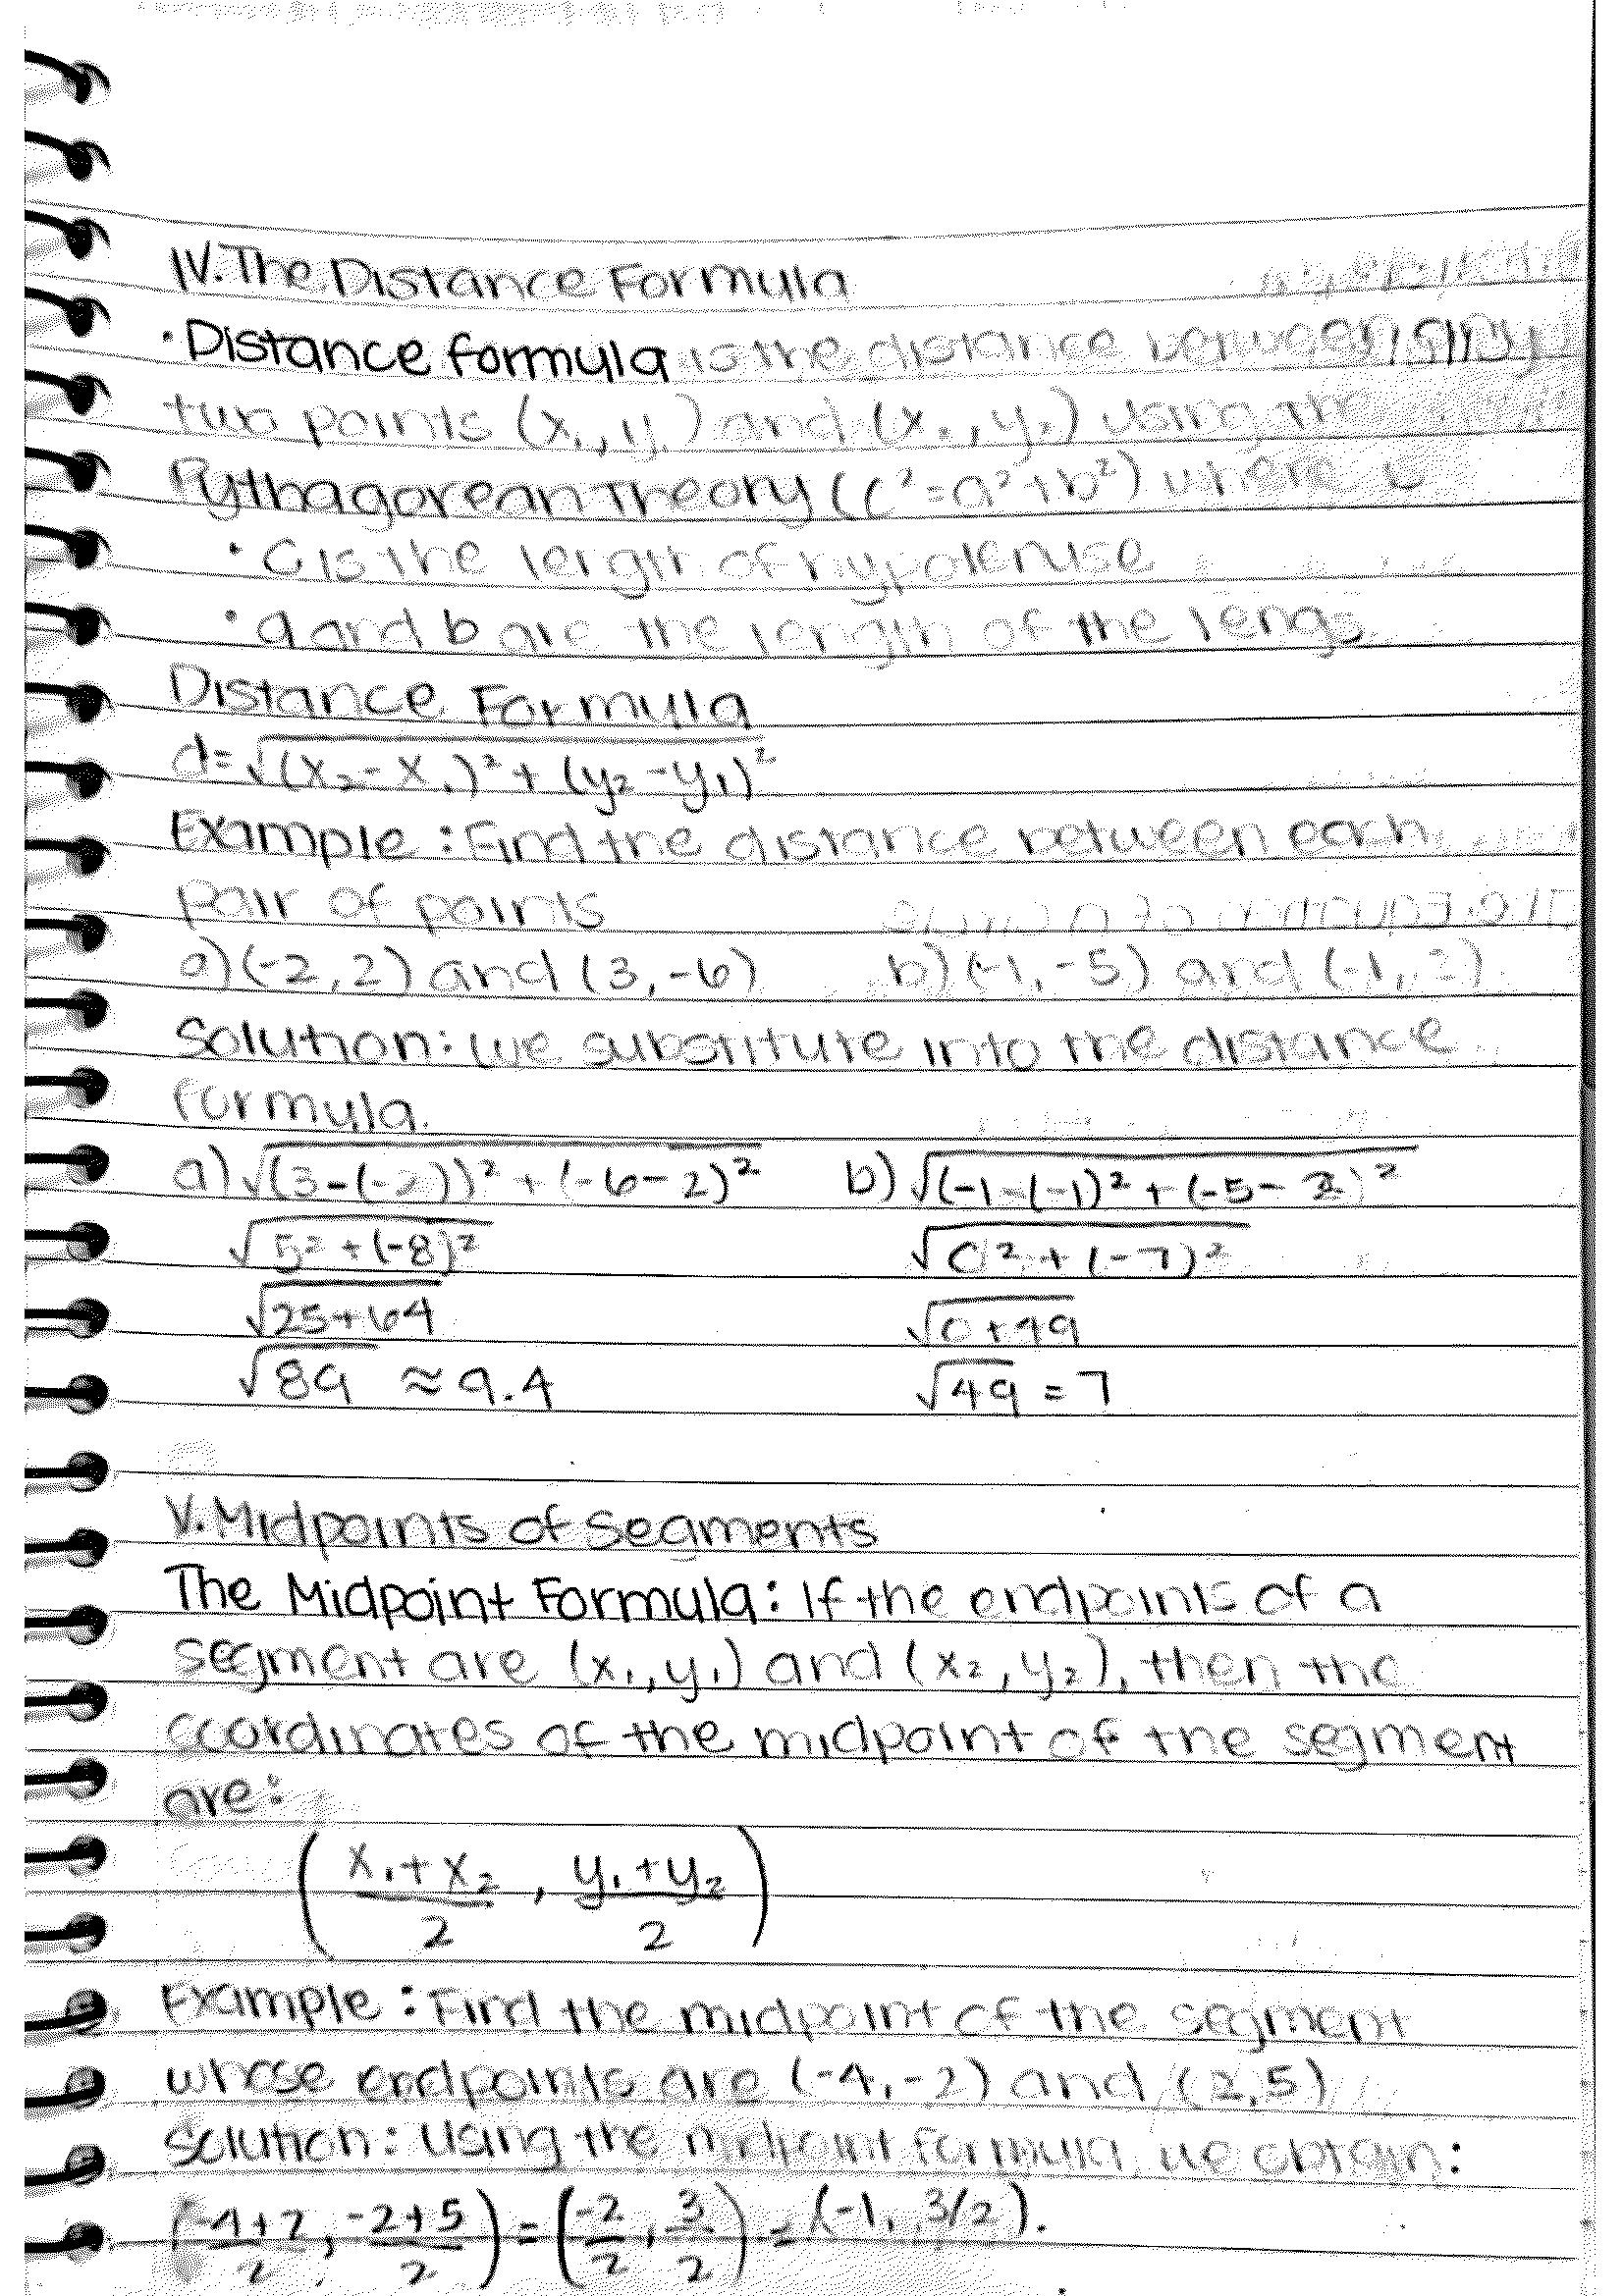 IV. The Distance Formula
· Distance formula is the distance between any
two points (x₁, y₁) and (x₂, y₂) using the
Pythagorean Theory (c²=a²+b²) where
· C is the length of hypotenuse
· a and b are the length of the lengs
Distance Formula
d=√(x₂-x₁)²+(y₂-y₁)²
Example: Find the distance between each
pair of points
a)(-2,2) and (3,-6) b)(-1,-5) and (-1,2)
Solution: we substitute into the distance
formula.
a)√(3-(-2))²+(-6-2)² b)√(-1-(-1)²+(-5-2)²
√5²+(-8)² √0²+(-7)²
√25+64 √0+49
√89 ≈ 9.4 √49 = 7
V. Midpoints of Segments
The Midpoint Formula: If the endpoints of a
segment are (x₁, y₁) and (x₂, y₂), then the
coordinates of the midpoint of the segment
are:
(x₁+x₂/2, y₁+y₂/2)
Example: Find the midpoint of the segment
whose endpoints are (-4,-2) and (2,5)
Solution: Using the midpoint formula, we obtain:
(-4+2/2, -2+5/2) = (-2/2, 3/2) = (-1, 3/2).